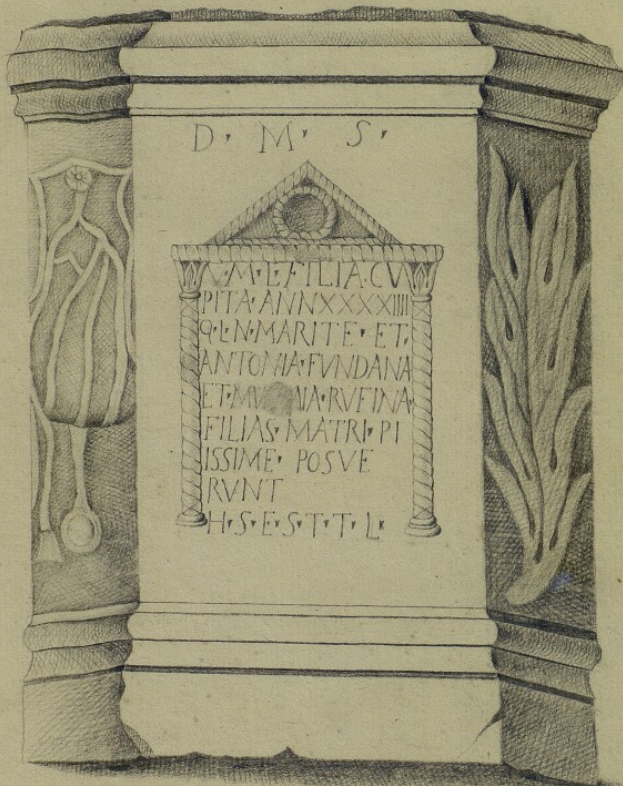 D · M · S ·
M · L · FILIA · CV
PITA · ANNXXXXIIII
Q · L · N · MARITE · ET ·
ANTONIA · FVNDANA
ET · RVFINA
FILIAS · MATRI · PI
ISSIME · POSVE
RVNT
H · S · E · S · T · T · L ·